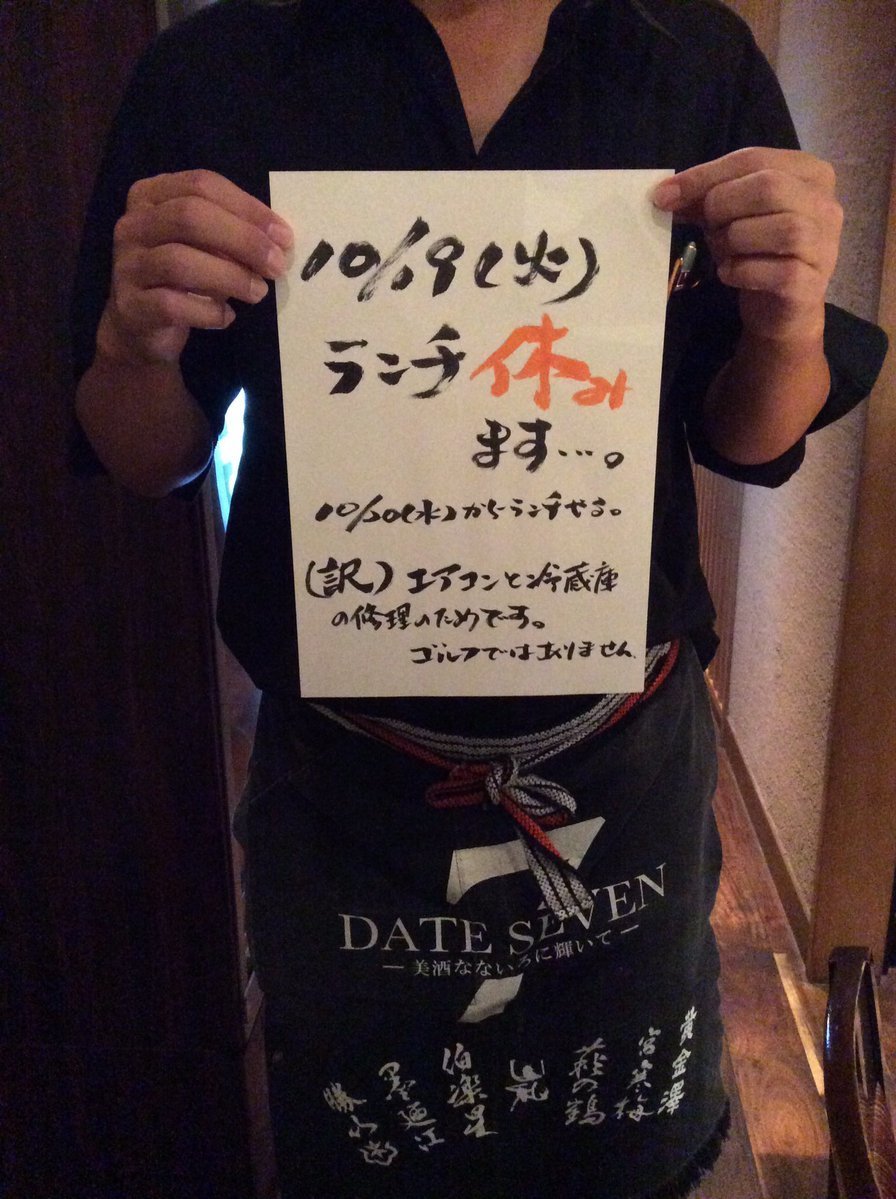 10/19(火)
ランチ休み
ます…。
10/20(水)からランチやる。
(訳)エアコンと冷蔵庫
の修理のためです。
ゴルフではありません
7
DATE SEVEN
―美酒なないろに輝いて―
黄金澤
宮寒梅
萩の鶴
山和
伯楽星
墨廼江
勝山